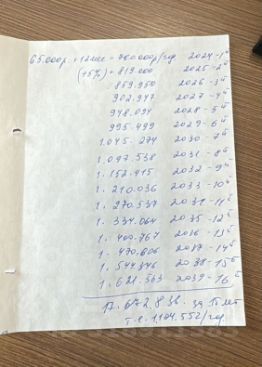 65000р. × 12мес = 780.000р/год 2024-1й
(+5%) = 819.000 2025-2й
859.950 2026-3й
902.947 2027-4й
948.094 2028-5й
995.499 2029-6й
1.045.274 2030-7й
1.097.538 2031-8й
1.152.415 2032-9й
1.210.036 2033-10й
1.270.537 2034-11й
1.334.064 2035-12й
1.400.767 2036-13й
1.470.806 2037-14й
1.544.346 2038-15й
1.621.563 2039-16й
17.672.836. за 16 лет
т.е. 1.104.552/год